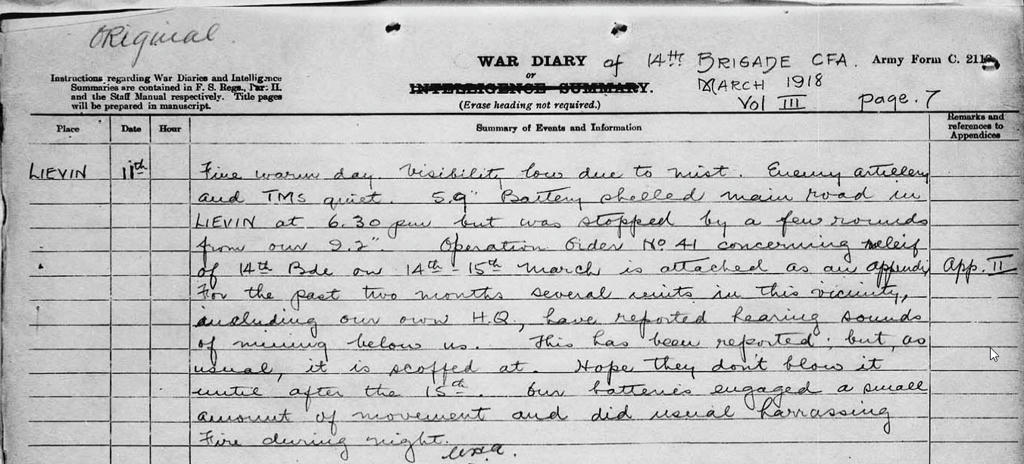 ORIGINAL
WAR DIARY of 14th BRIGADE CFA. Army Form C. 2118.
Instructions regarding War Diaries and Intelligence
Summaries are contained in F. S. Regs., Par: II.
and the Staff Manual respectively. Title pages
will be prepared in manuscript.
or
INTELLIGENCE SUMMARY.
(Erase heading not required.)
MARCH 1918
Vol III page. 7
Place Date Hour Summary of Events and Information Remarks and references to Appendices
LIEVIN 11th Fine warm day. Visibility low due to mist. Enemy artillery
and TMs quiet. 5.9" Battery shelled main road in
LIEVIN at 6.30 pm but was stopped by a few rounds
from our 9.2" Operation Order No 41 concerning releif
of 14th Bde on 14th - 15th March is attached as an Appendix App. II
For the past two months several units in this vicinity,
including our own H.Q., have reported hearing sounds
of mining below us. This has been reported; but, as
usual, it is scoffed at. Hope they don't blow it
until after the 15th. Our batteries engaged a small
amount of movement and did usual harrassing
Fire during night.